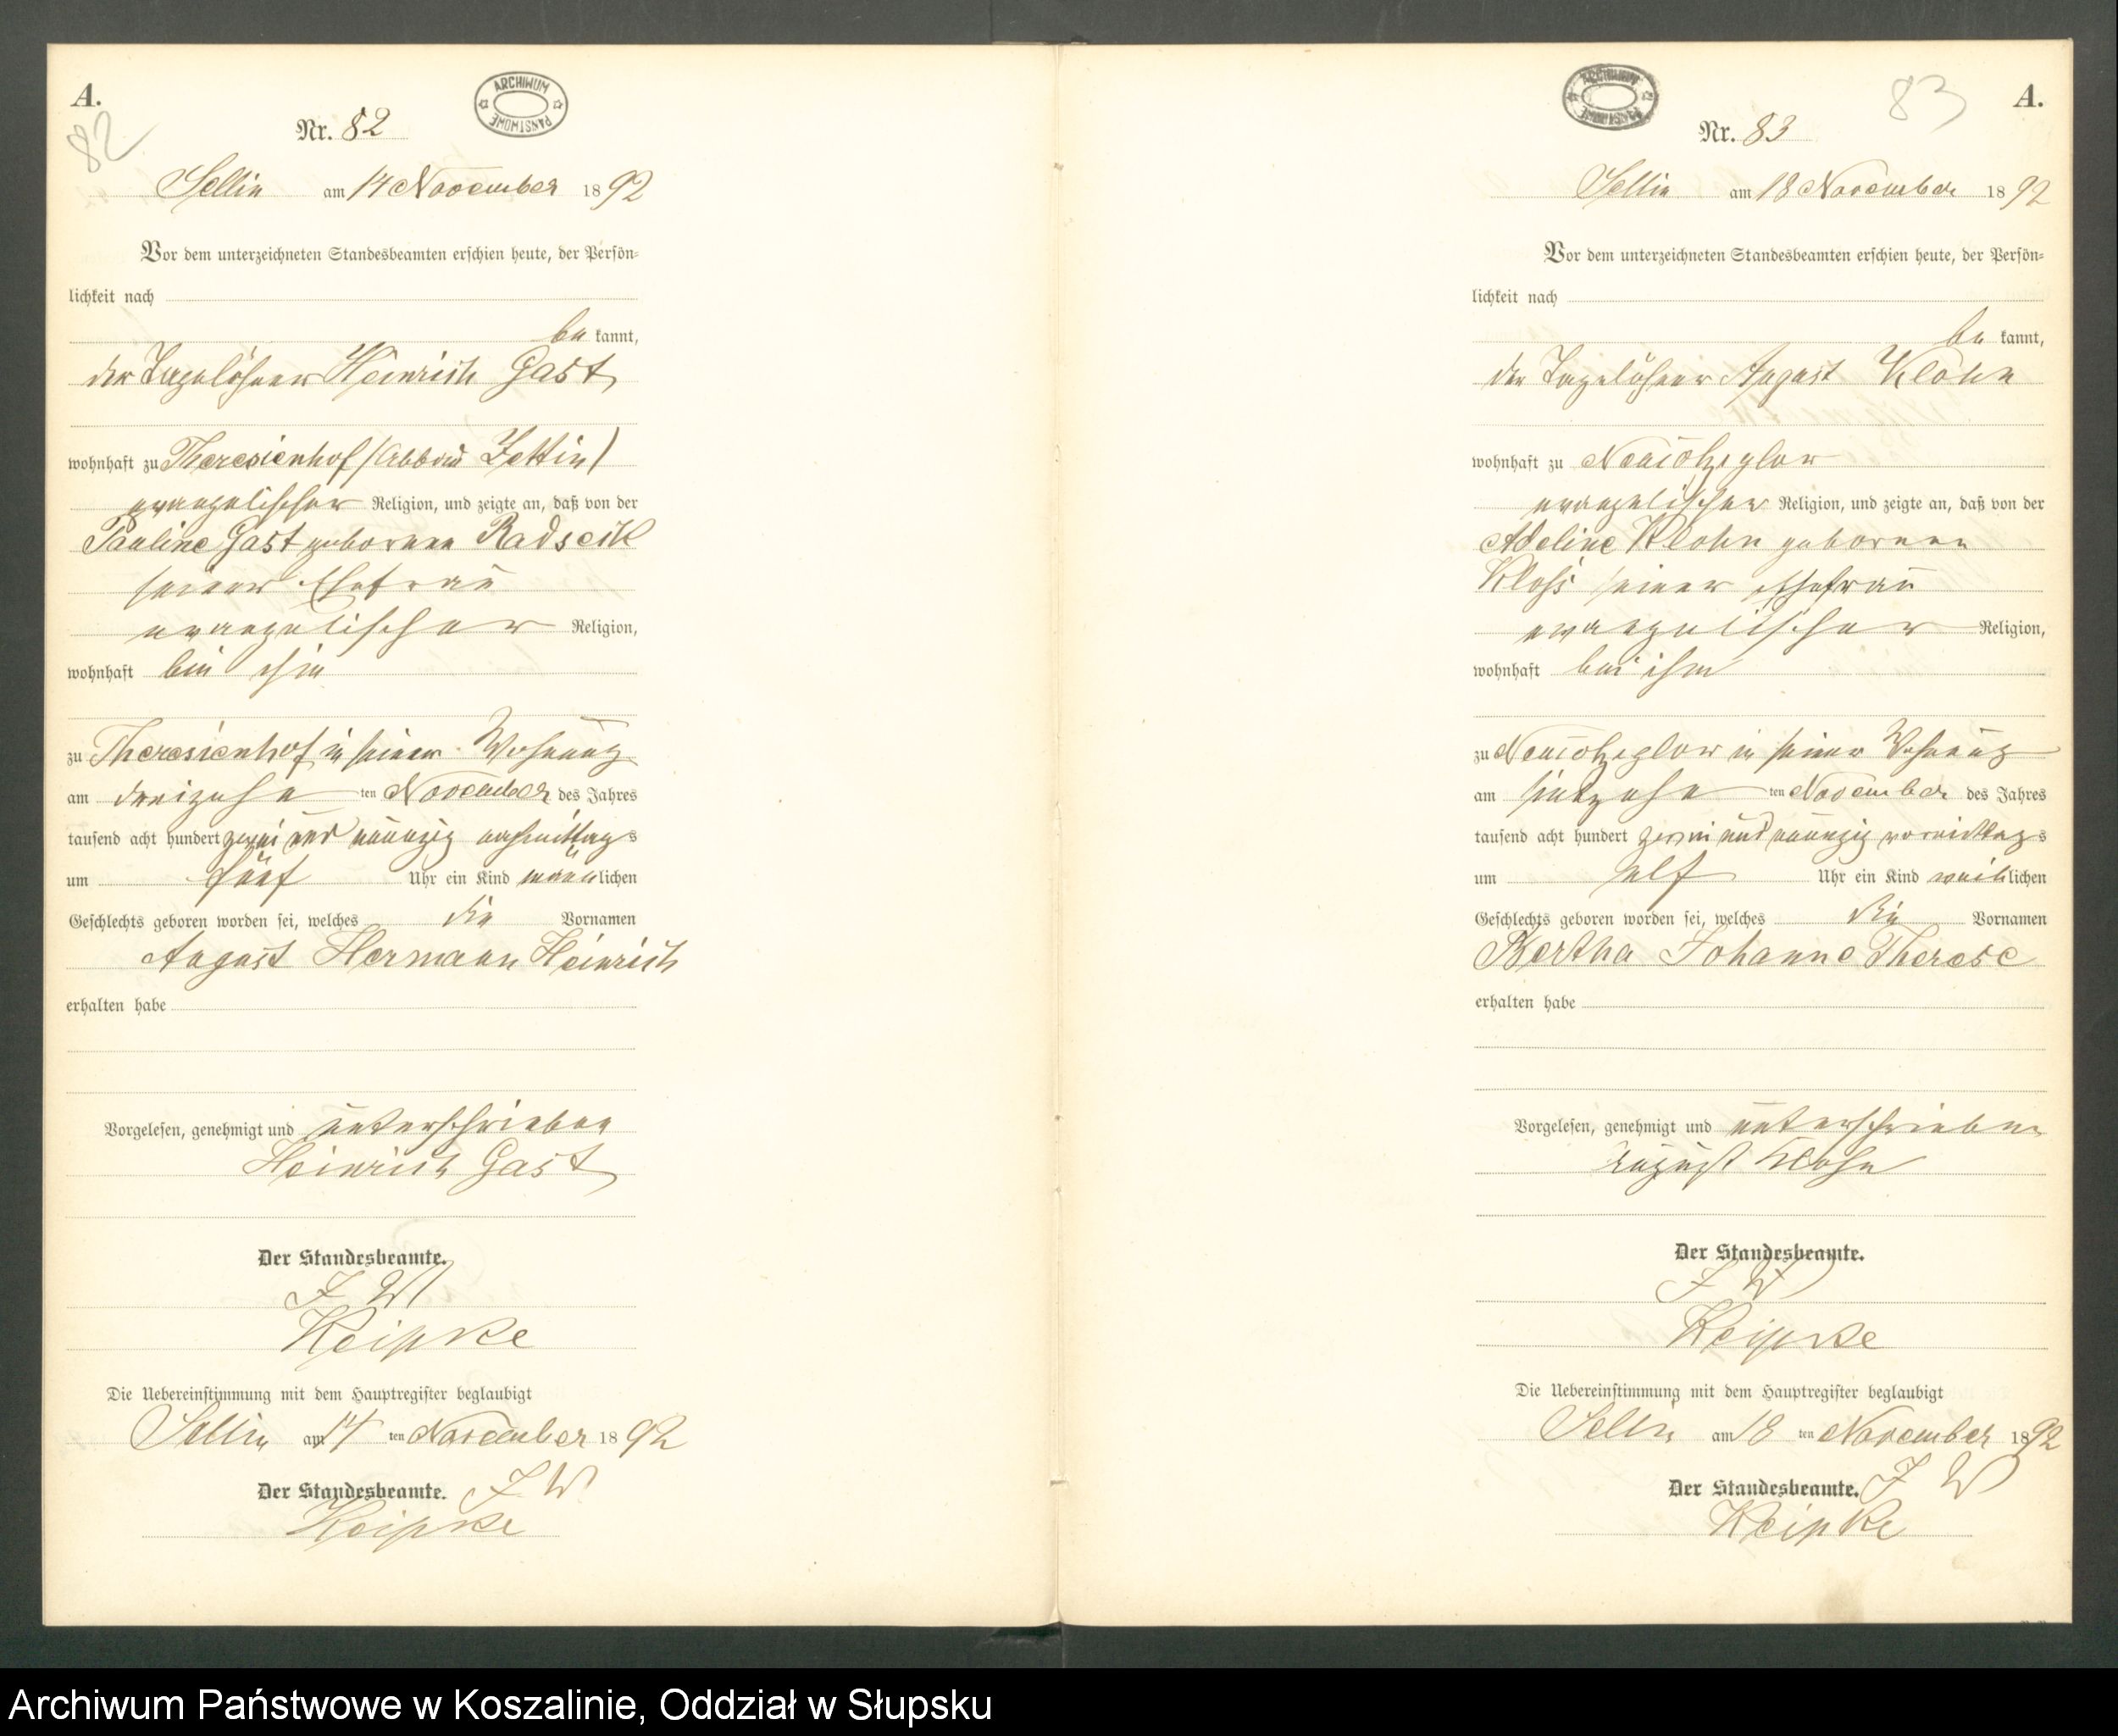 A.
82
ARCHIWUM PAŃSTWOWE
Nr. 82
Sellin am 14 November 1892
Vor dem unterzeichneten Standesbeamten erschien heute, der Persön-
lichkeit nach
be kannt,
der Tagelöhner Heinrich Gast
wohnhaft zu Theresienhof (Abbau Zettin)
evangelischer Religion, und zeigte an, daß von der
Pauline Gast geborenen
seiner Ehefrau
evangelischer Religion,
wohnhaft bei ihm
zu Theresienhof in seiner Wohnung
am dreizehn ten November des Jahres
tausend acht hundert zwei und neunzig nachmittags
um fünf Uhr ein Kind männlichen
Geschlechts geboren worden sei, welches die Vornamen
August Hermann Heinrich
erhalten habe
Vorgelesen, genehmigt und unterschrieben
Heinrich Gast
Der Standesbeamte.
J W
Keipke
Die Uebereinstimmung mit dem Hauptregister beglaubigt
Sellin am 14 ten November 1892
Der Standesbeamte. J W
Keipke
ARCHIWUM PAŃSTWOWE
83
A.
Nr. 83
Sellin am 18 November 1892
Vor dem unterzeichneten Standesbeamten erschien heute, der Persön-
lichkeit nach
be kannt,
der Tagelöhner August Klohn
wohnhaft zu Neukolziglow
evangelischer Religion, und zeigte an, daß von der
Adeline Klohn geborenen
Kloß seiner Ehefrau
evangelischer Religion,
wohnhaft bei ihm
zu Neukolziglow in seiner Wohnung
am siebzehn ten November des Jahres
tausend acht hundert zwei und neunzig vormittags
um elf Uhr ein Kind weiblichen
Geschlechts geboren worden sei, welches die Vornamen
Bertha Johanne Therese
erhalten habe
Vorgelesen, genehmigt und unterschrieben
August Klohn
Der Standesbeamte.
J W
Keipke
Die Uebereinstimmung mit dem Hauptregister beglaubigt
Sellin am 18 ten November 1892
Der Standesbeamte. J W
Keipke
Archiwum Państwowe w Koszalinie, Oddział w Słupsku